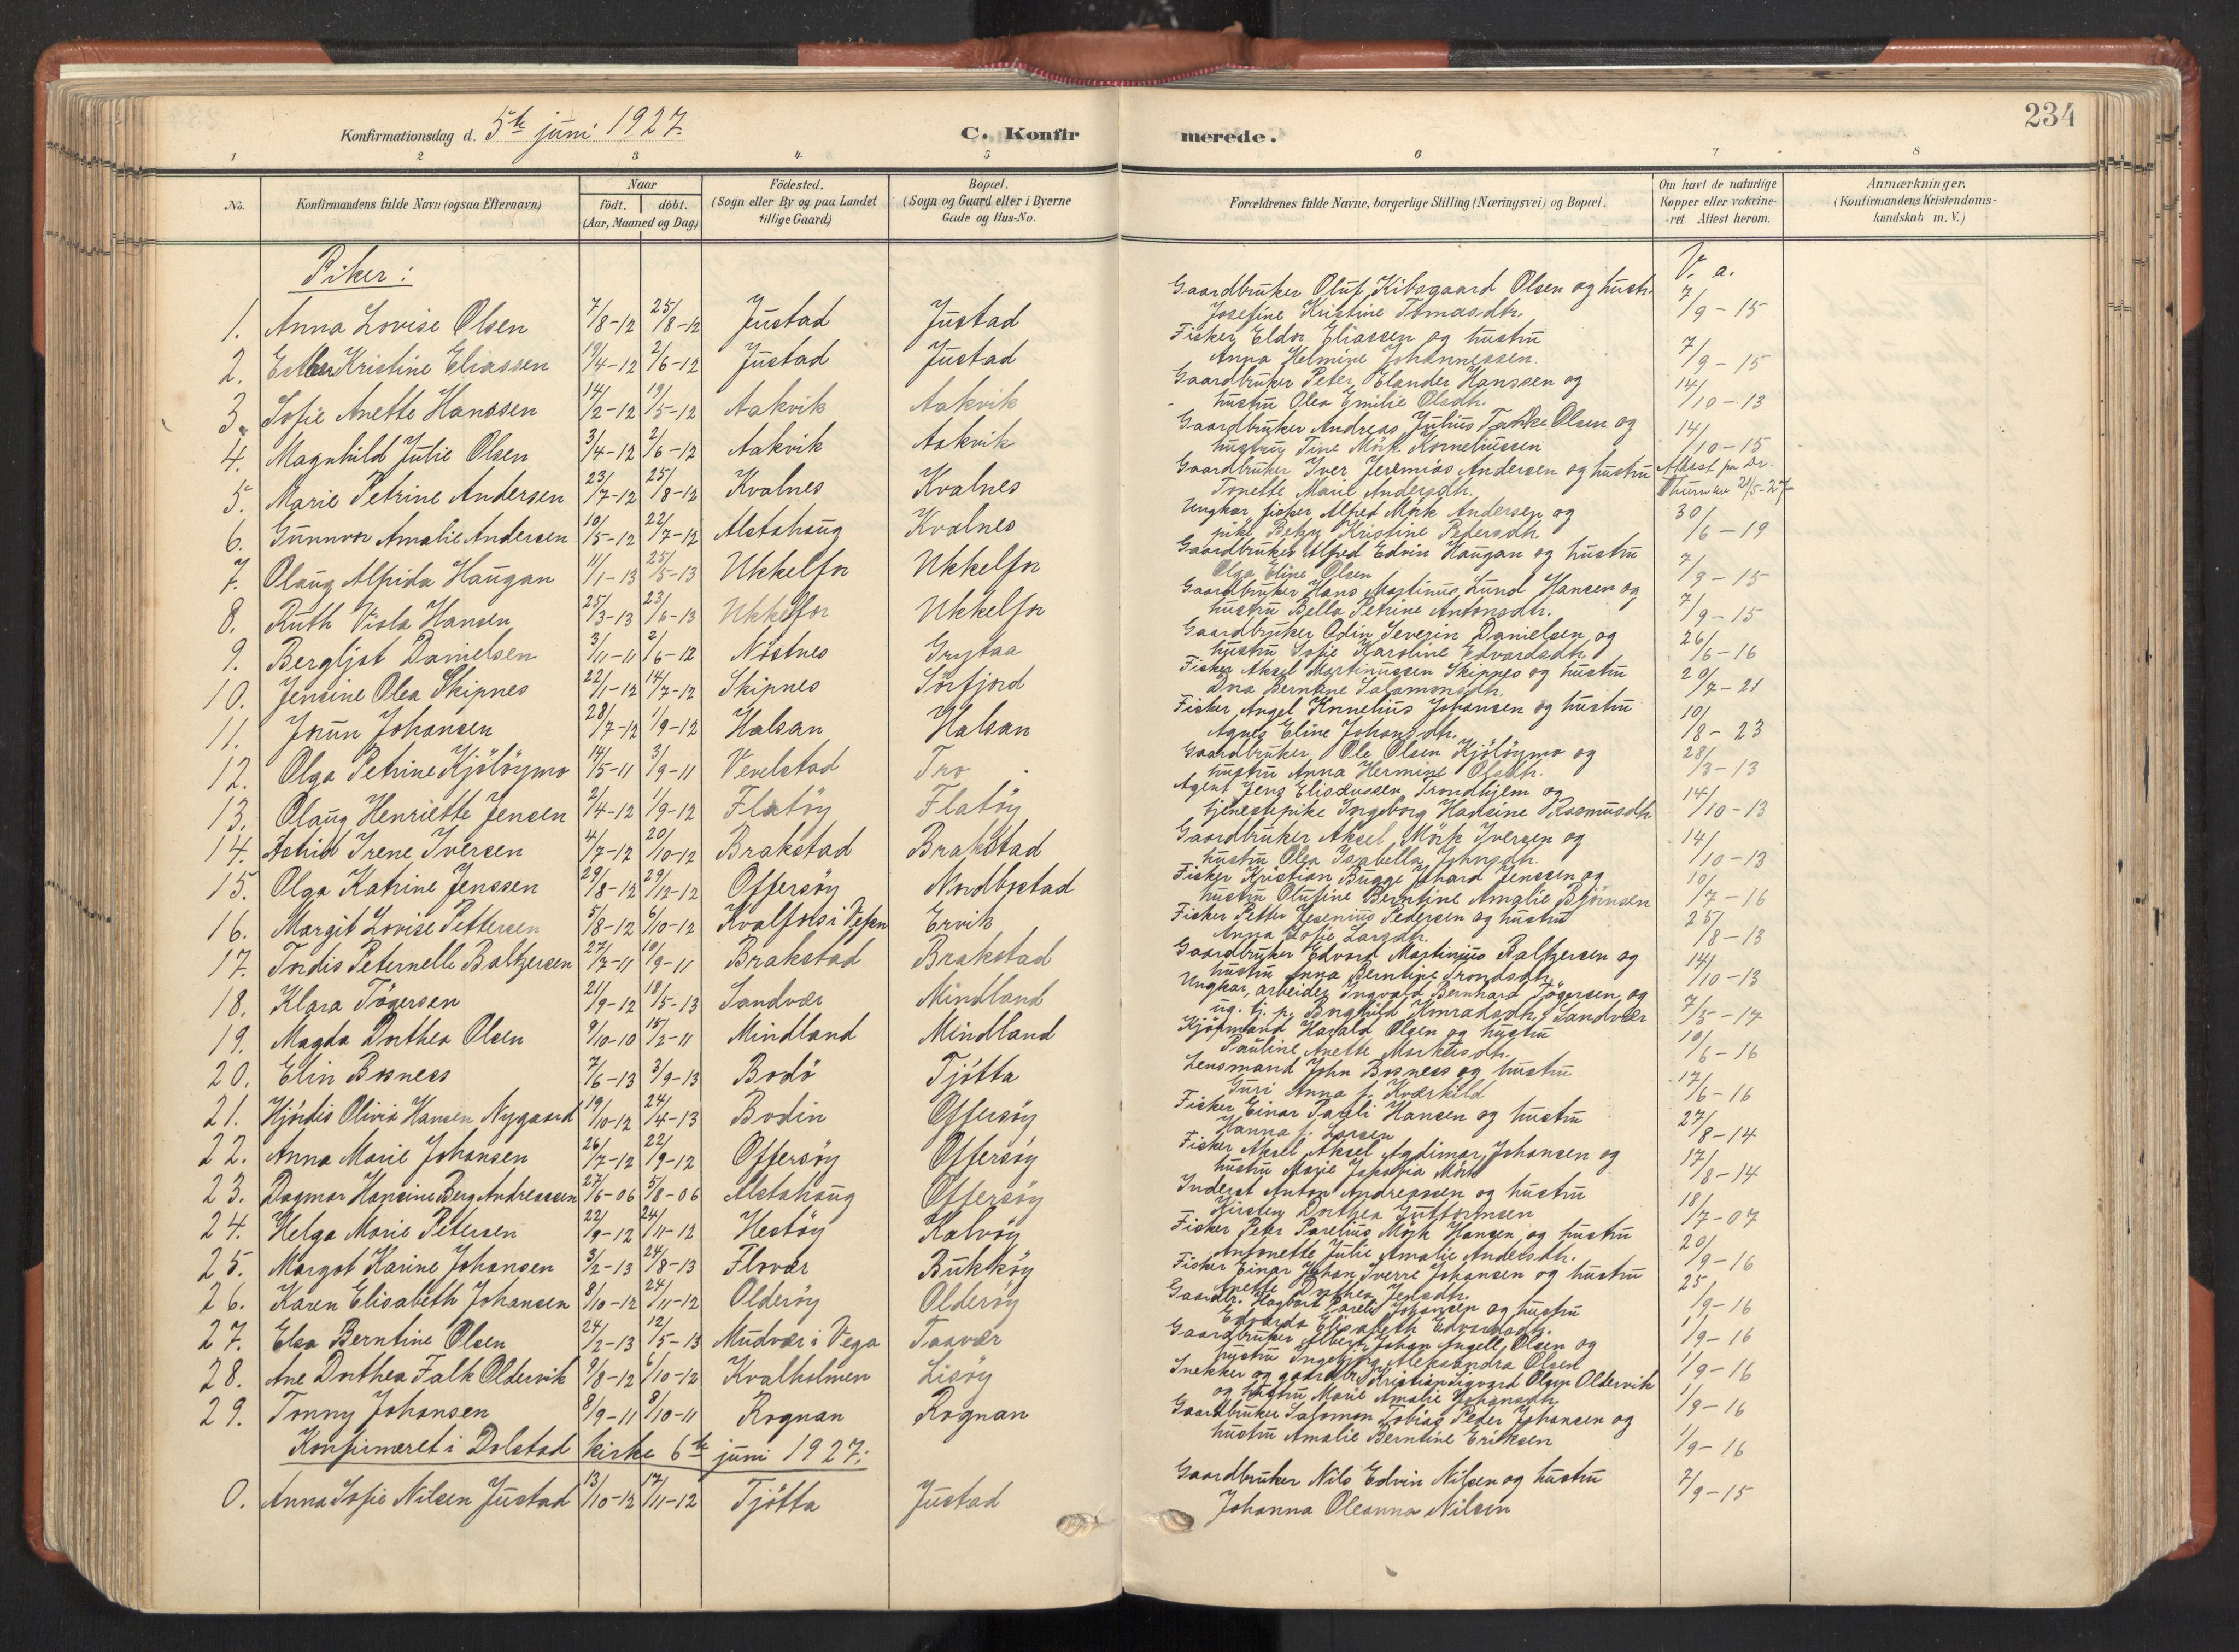 234
Konfirmationsdag d. 5te juni 1927.
C. Konfirmerede.
1 2 3 4 5 6 7 8
No. Konfirmandens fulde Navn (ogsaa Efternavn) Naar födt. döbt. (Aar, Maaned og Dag) Födested. (Sogn eller By og paa Landet tillige Gaard) Bopæl. (Sogn og Gaard eller i Byerne Gade og Hus-No. Forældrenes fulde Navne, borgerlige Stilling (Næringsvei) og Bopæl. Om havt de naturlige Kopper eller vakcineret. Attest herom. Anmærkninger. (Konfirmandens Kristendomskundskab m. V.)
Piker: V. a.
1. Anna Lovise Olsen 7/8-12 25/8-12 Justad Justad Gaardbruker Oluf Kibsgaard Olsen og hustr. 7/9-15
Josefine Kristine Tomasdtr.
2. Ester Kristine Eliassen 19/4-12 2/6-12 Justad Justad Fisker Eldor Eliassen og hustru 7/9-15
Anna Helmine Johannessen.
3. Sofie Anette Hanssen 14/2-12 19/5-12 Aakvik Aakvik Gaardbruker Peter Elander Hanssen og 14/10-13
hustru Olea Emilie Olsdtr.
4. Magnhild Julie Olsen 3/4-12 2/6-12 Aakvik Aakvik Gaardbruker Andreas Julius Tanke Olsen og 14/10-15
hustru Tine Mörk Korneliussen
5. Marie Petrine Andersen 23/7-12 25/8-12 Kvalnes Kvalnes Gaardbruker Iver Jeremias Andersen og hustru Attest fra Dr.
Tonette Marie Andersdtr. 21/5-27
6. Gunnvor Amalie Andersen 10/5-12 22/7-12 Alstahaug Kvalnes Ungkar fisker Alfred Mörk Andersen og 30/6-19
pike Betzy Kristine Pedersdtr.
7. Olaug Alfida Haugan 11/1-13 25/5-13 Ukkelfor Ukkelfor Gaardbruker Alfred Edvin Haugan og hustru 7/9-15
Olga Eline Olsen
8. Ruth Viola Hansen 25/3-13 23/6-13 Ukkelfor Ukkelfor Gaardbruker Hans Martinus Lund Hansen og 7/9-15
hustru Bella Petrine Antonsdtr.
9. Bergljot Danielsen 3/11-11 2/6-12 Nöstnes Grytaa Gaardbruker Odin Severin Danielsen og 26/6-16
hustru Sofie Karoline Edvardsdtr.
10. Jensine Olea Skipnes 22/1-12 14/7-12 Skipnes Sörfjord Fisker Aksel Martinussen Skipnes og hustru 20/7-21
Dna Berntine Salamonsdtr.
11. Jorun Johansen 28/7-12 1/9-12 Halsan Halsan Fisker Angel Kornelius Johansen og hustru 10/8-23
Agnes Eline Johansdtr.
12. Olga Petrine Kjölöymo 14/5-11 3/9-11 Vevelstad Tro Gaardbruker Ole Olsen Kjölöymo og 28/3-13
hustru Anna Hermine Olsdtr.
13. Olaug Henriette Jensen 2/4-12 1/9-12 Flatöy Flatöy Agent Jens Elisæussen, Trondhjem og 14/10-13
tjenestepike Ingeborg Hansine Rasmusdtr.
14. Astrid Irene Iversen 4/7-12 20/10-12 Brakstad Brakstad Gaardbruker Aksel Mörk Iversen og 14/10-13
hustru Olea Isabella Johnsdtr.
15. Olga Katrine Jenssen 29/8-12 29/12-12 Offersöy Nordbostad Fisker Kristian Bugge Johard Jenssen og 10/7-16
hustru Olufine Berntine Amalie Björnsen
16. Margit Lovise Pettersen 5/8-12 6/10-12 Kvalfors i Vefsn Ervik Fisker Petter Jesenius Pedersen og hustru 25/8-13
Anna Sofie Larsdtr.
17. Tordis Peternelle Baltzersen 27/7-11 10/9-11 Brakstad Brakstad Gaardbruker Edvard Martinius Baltzersen og 14/10-13
hustru Anna Berntine Trondsdtr.
18. Klara Tögersen 21/9-12 18/5-13 Sandvær Mindland Ungkar, arbeider Ingvald Bernhard Tögersen og 7/5-17
ug. tj. p. Borghild Konradsdtr. Sandvær
19. Magda Dorthea Olsen 9/10-10 15/2-11 Mindland Mindland Kjöpmand Harald Olsen og hustru 10/6-16
Pauline Anette Markusdtr.
20. Elin Bosness 7/6-13 3/9-13 Bodö Tjötta Lensmand John Bosness og hustru 17/6-16
Guri Anna f. Kværkild
21. Hjördis Olivia Hansen Nygaard 19/10-12 24/4-13 Bodin Offersöy Fisker Einar Pareli Hansen og hustru 27/8-14
Hanna f. Larsen
22. Anna Marie Johansen 26/7-12 22/9-12 Offersöy Offersöy Fisker Aksel Aksel Agdimar Johansen og 17/8-14
hustru Marie Jakobia Mörk
23. Dagmar Hansine Berg Andreassen 27/6-06 5/8-06 Alstahaug Offersöy Inderst Anton Andreassen og hustru 18/7-07
Kirsten Dorthea Guttormsen
24. Helga Marie Petersen 22/9-12 24/11-12 Hestöy Kalvöy Fisker Peter Parelius Mörk Hansen og hustru 20/9-16
Antonette Julie Amalie Andersdtr.
25. Margot Karine Johansen 3/2-13 24/8-13 Flovær Bukköy Fisker Einar Johan Sverre Johansen og hustru 25/9-16
Anette Dorthea Jensdtr.
26. Karen Elisabeth Johansen 8/10-12 24/11-12 Olderöy Olderöy Gaardbr. Hagbart Pareli Johansen og hustru 1/9-16
Edvarda Elisabeth Edvardsdtr.
27. Elsa Berntine Olsen 24/2-13 12/5-13 Mudvær i Vega Taavær Gaardbruker Albert Johan Angell Olsen og 1/9-16
hustru Ingebjörg Aleksandra Olsen
28. Ane Dorthea Falk Oldervik 9/8-12 6/10-12 Kvalholmen Lisöy Snekker og gaardbr. Kristian Sigvard Olsen Oldervik 1/9-16
og hustru Marie Amalie Johansdtr.
29. Tonny Johansen 8/9-11 8/10-11 Rognan Rognan Gaardbruker Salomon Tobias Peder Johansen og 1/9-16
hustru Amalie Berntine Eriksen
Konfirmeret i Dolstad kirke 6te juni 1927:
0. Anna Sofie Nilsen Justad 13/10-12 17/11-12 Tjötta Justad Gaardbruker Nils Edvin Nilsen og hustru 7/9-15
Johanna Oleanna Nilsen